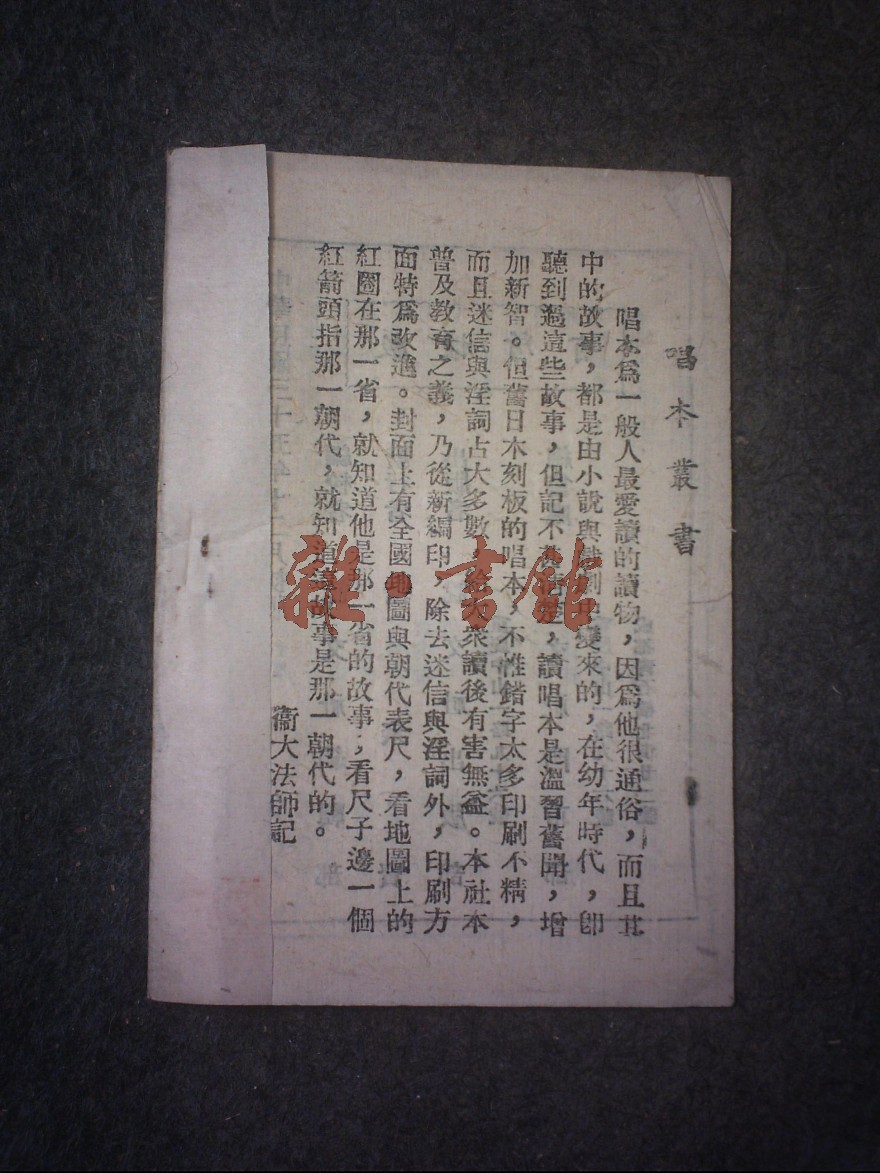 唱本叢書
唱本爲一般人最愛讀的讀物，因爲他很通俗，而且其
中的故事，都是由小說與戲劇中變來的，在幼年時代，卽
聽到過這些故事，但記不甚清楚，讀唱本是溫習舊聞，增
加新智。但舊日木刻板的唱本，不惟錯字太多印刷不精，
而且迷信與淫詞占大多數，給大衆讀後有害無益。本社本
普及教育之義，乃從新編印，除去迷信與淫詞外，印刷方
面特爲改進。封面上有全國地圖與朝代表尺，看地圖上的
紅圈在那一省，就知道他是那一省的故事；看尺子邊一個
紅箭頭指那一朝代，就知道這故事是那一朝代的。
衞大法師記
雜·書館